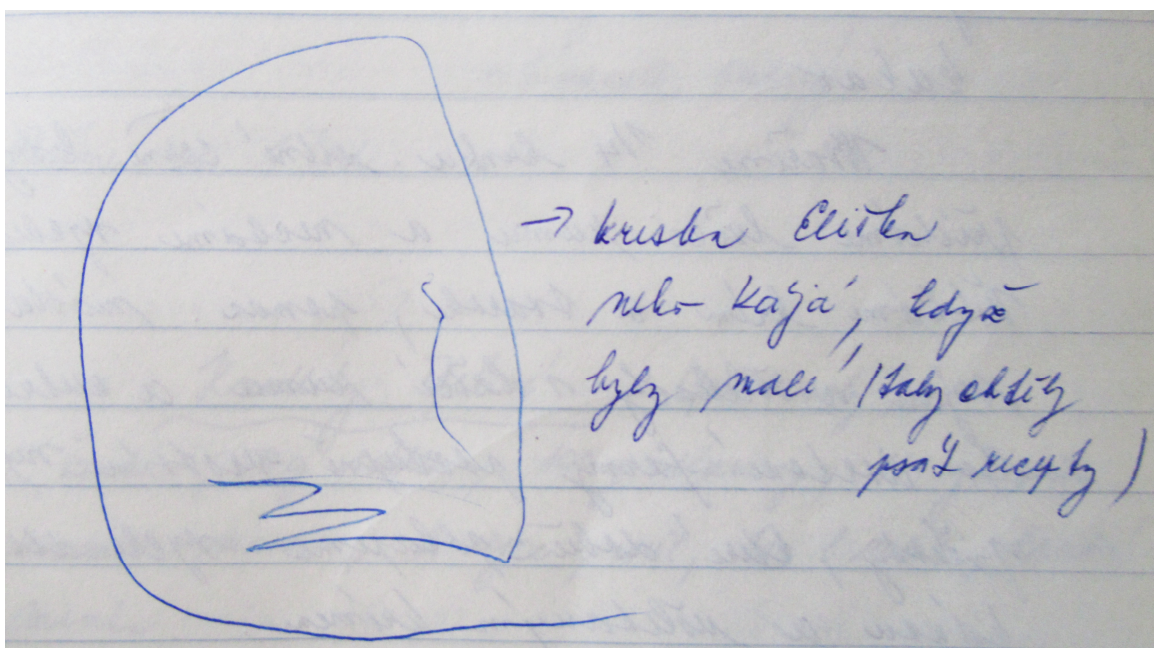 → kresba Eliška
nebo Kája, když
byly malé (taky chtěly
psát recepty)